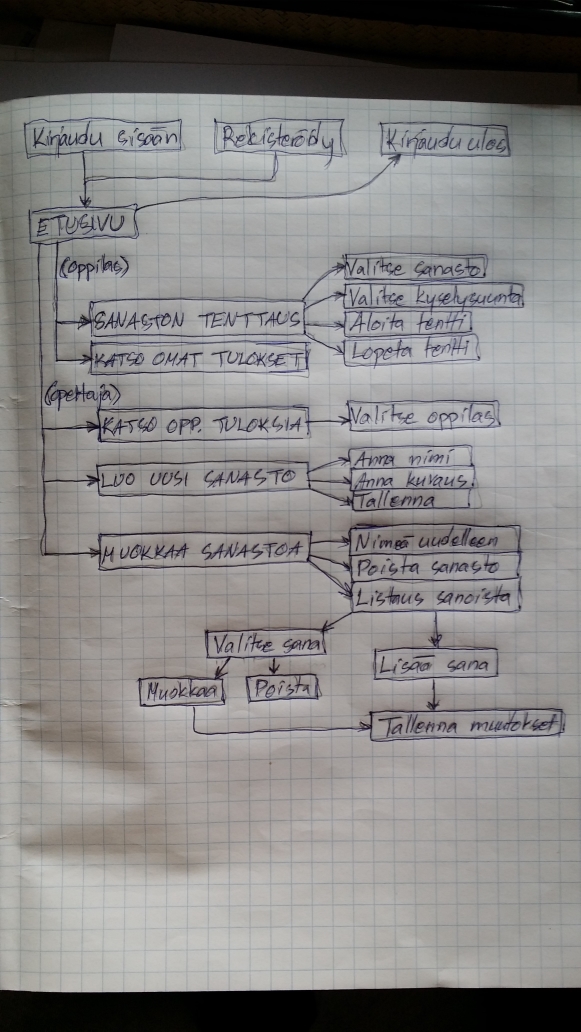 Kirjaudu sisään
Rekisteröidy
Kirjaudu ulos
ETUSIVU
(oppilas)
SANASTON TENTTAUS
Valitse sanasto
Valitse kyselysuunta
Aloita tentti
Lopeta tentti
KATSO OMAT TULOKSET
(opettaja)
KATSO OPP. TULOKSIA
Valitse oppilas
LUO UUSI SANASTO
Anna nimi
Anna kuvaus
Tallenna
MUOKKAA SANASTOA
Nimeä uudelleen
Poista sanasto
Listaus sanoista
Valitse sana
Lisää sana
Muokkaa
Poista
Tallenna muutokset